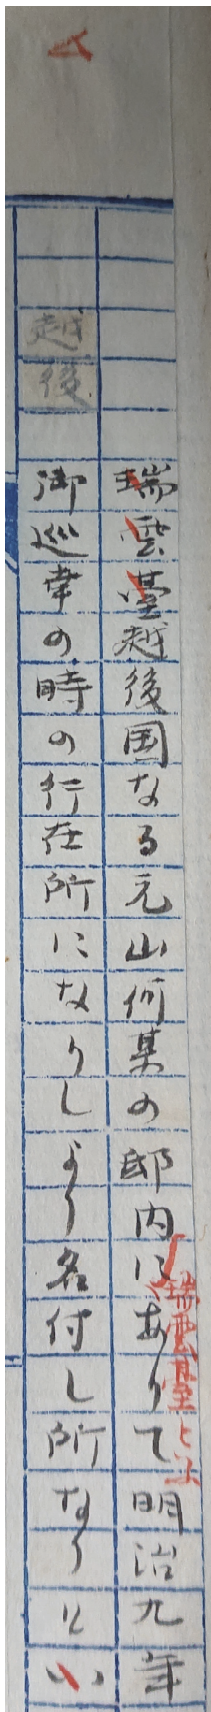 瑞雲臺越後国なる元山何某の邸内にありて明治九年
瑞雲臺は
越後
御巡幸の時の行在所になりしより名付し所なりとい